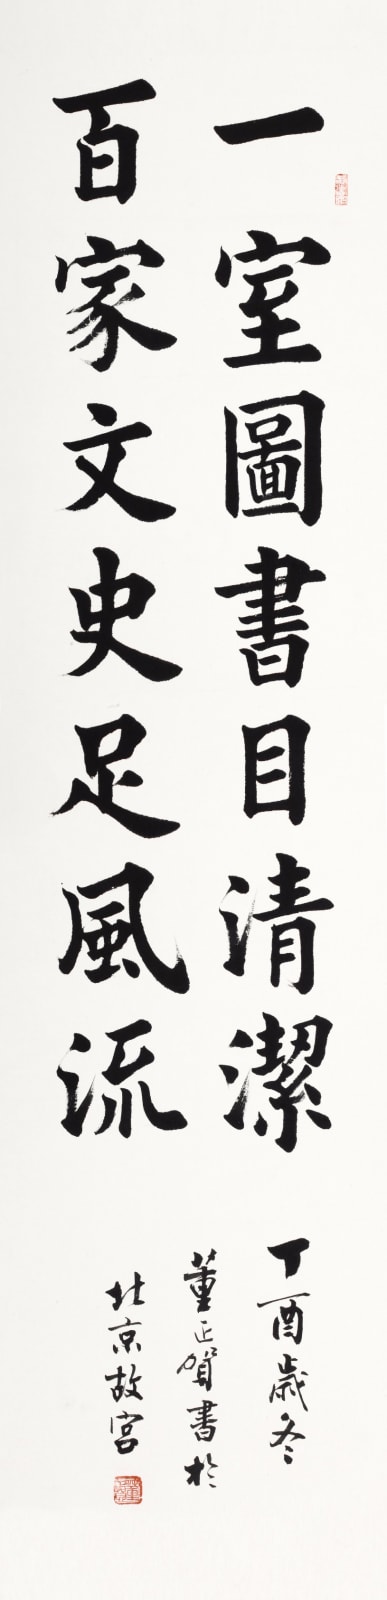 一室圖書目清潔
百家文史足風流
丁酉歲冬
董正賀書於
北京故宮